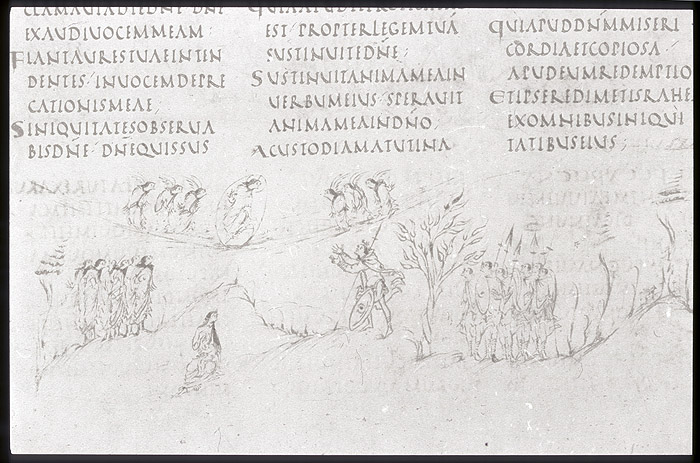 CLAMAUIADTEDNE DNE
EXAUDIUOCEMMEAM:
FIANTAURESTUAEINTEN
DENTES INUOCEMDEPRE
CATIONISMEAE;
SINIQUITATESOBSERUA
BISDNE DNEQUISSUS
EST PROPTERLEGEMTUA
SUSTINUITEDNE;
SUSTINUITANIMAMEAIN
UERBUMEIUS SPERAUIT
ANIMAMEAINDNO;
ACUSTODIAMATUTINA
QUIAPUDDNMMISERI
CORDIAETCOPIOSA
APUDEUMREDEMPTIO
ETIPSEREDIMETISRAHE
EXOMNIBUSINIQUI
TATIBUSEIUS;